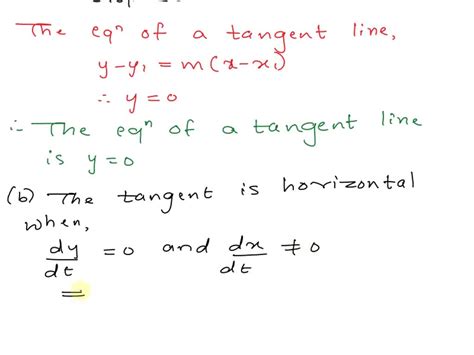 The eqⁿ of a tangent line,
y-y₁ = m(x-x₁)
∴ y=0
∴ The eqⁿ of a tangent line
is y=0
(b) The tangent is horizontal
when,
dy/dt = 0 and dx/dt ≠ 0
=